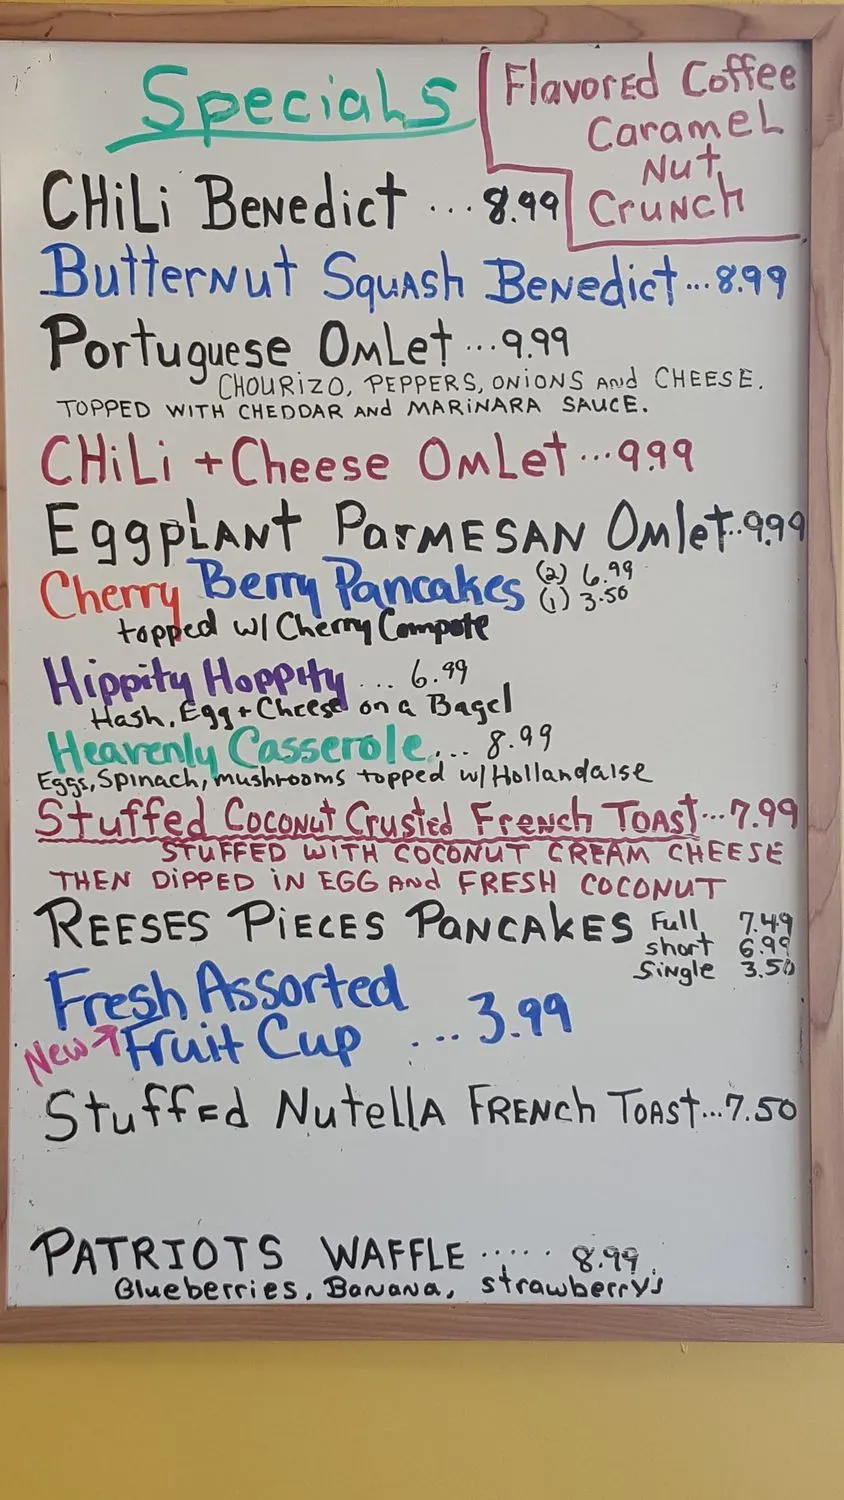 Specials
Flavored Coffee
Caramel
Nut
Crunch
CHiLi Benedict ... 8.99
Butternut Squash Benedict ... 8.99
Portuguese Omlet ... 9.99
CHOURIZO, PEPPERS, ONIONS and CHEESE.
TOPPED WITH CHEDDAR and MARINARA SAUCE.
CHiLi + Cheese Omlet ... 9.99
Eggplant Parmesan Omlet .. 9.99
Cherry Berry Pancakes (2) 6.99
(1) 3.50
topped w/ Cherry Compote
Hippity Hoppity ... 6.99
Hash, Egg + Cheese on a Bagel
Heavenly Casserole ... 8.99
Eggs, Spinach, mushrooms topped w/ Hollandaise
Stuffed Coconut Crusted French Toast ... 7.99
STUFFED WITH COCONUT CREAM CHEESE
THEN DIPPED IN EGG AND FRESH COCONUT
REESES PIECES PANCAKES Full 7.49
short 6.99
Single 3.50
Fresh Assorted
New → Fruit Cup ... 3.99
Stuffed Nutella French Toast ... 7.50
PATRIOTS WAFFLE ..... 8.99
Blueberries, Banana, strawberry's